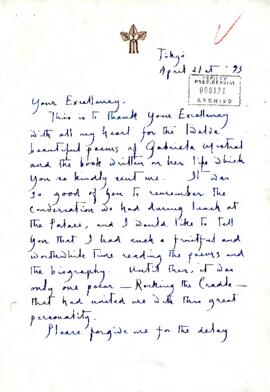 Tokyo
April 21st '93
PERIODO
PRESIDENCIAL
000121
ARCHIVO
Your Excellency,
This is to thank Your Excellency
with all my heart for the twelve
beautiful poems of Gabriela Mistral
and the book written on her life which
You so kindly sent me. It was
so good of you to remember the
conversation we had during lunch at
the Palace, and I would like to tell
You that I had such a fruitful and
worthwhile time reading the poems and
the biography. Until then, it was
only one poem — Rocking the Cradle —
that had united me with this great
personality.
Please forgive me for the delay